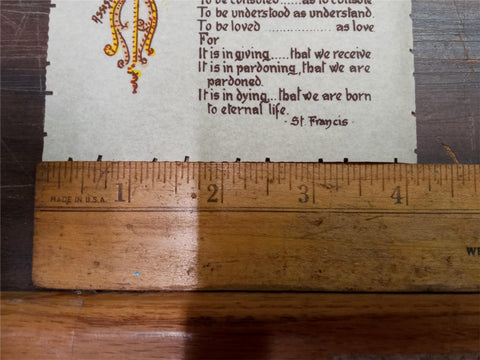 To be consoled.....as to console
To be understood as understand.
To be loved ................. as love
For
It is in giving.....that we receive
It is in pardoning, that we are
pardoned.
It is in dying,..that we are born
to eternal life.
- St. Francis -
1 2 3 4
MADE IN U.S.A.